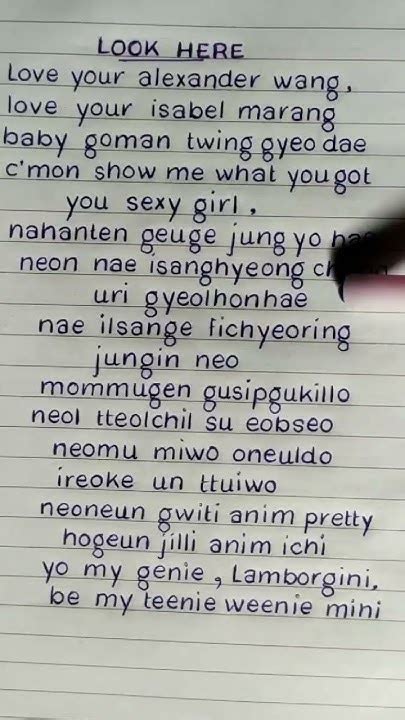 LOOK HERE
Love your alexander wang,
love your isabel marang
baby goman twing gyeo dae
c'mon show me what you got
you sexy girl,
nahanten geuge jung yo
neon nae isanghyeong
uri gyeolhonhae
nae ilsange fichyeoring
jungin neo
mommugen gusipgukillo
neol tteolchil su eobseo
neomu miwo oneuldo
ireoke un ttuiwo
neoneun gwiti anim pretty
hogeun jilli anim ichi
yo my genie, Lamborgini,
be my teenie weenie mini